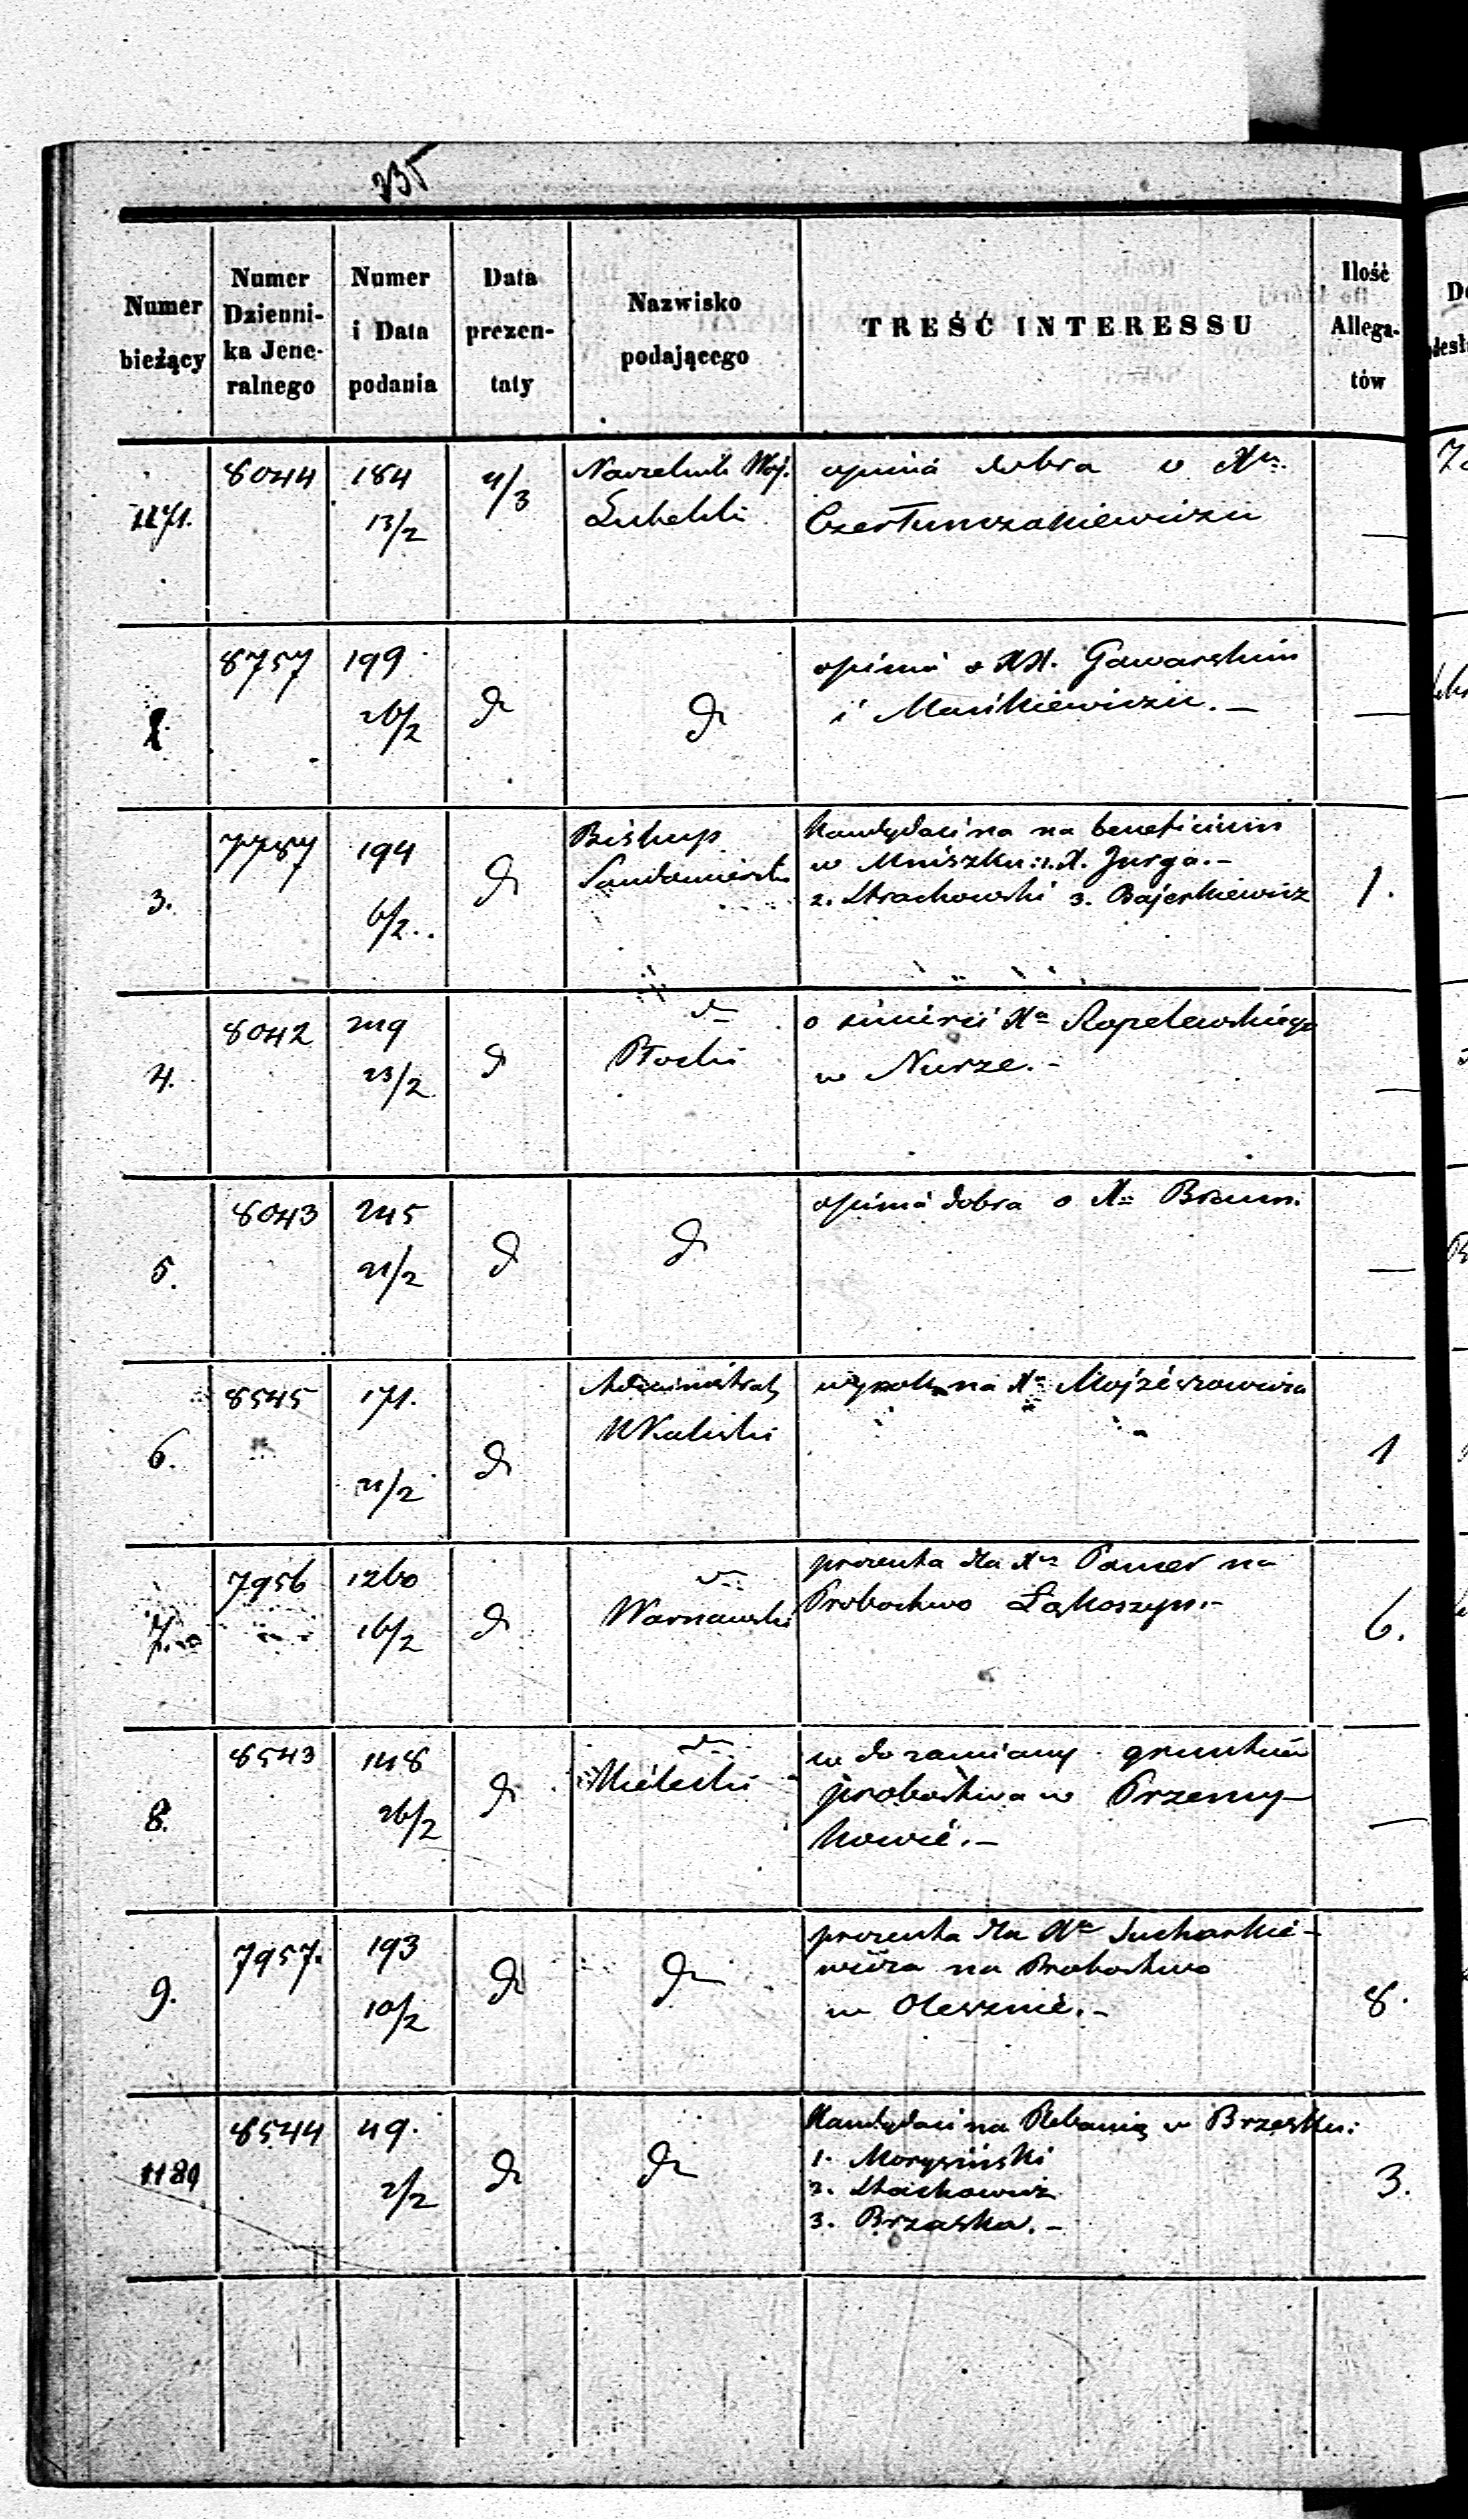 235
Numer bieżący | Numer Dzienni- ka Jene- ralnego | Numer i Data podania | Data prezen- taty | Nazwisko podającego | TREŚĆ INTERESSU | Ilość Allega- tów
1171. | 8044 | 184 13/2 | 4/3 | Naczelnik Woj. Lubelski | opinia dobra o Xu. Czertunczakiewiczu | —
2. | 8757 | 199 26/2 | do | do | opinia o XX. Gawarskim i Maćkiewiczu. — | —
3. | 7787 | 194 6/2. | do | Biskup Sandomierski | Kandydaci na na beneficium w Mniszku: 1. X. Jurga. – 2. Strachowski 3. Bajerkiewicz | 1.
4. | 8042 | 249 23/2 | do | do Płocki | o śmierci Xa Ropelewskiego w Nurze. – | —
5. | 8043 | 245 21/2 | do | do | opinia dobra o Xu Braun. | —
6. | 8545 | 171. 21/2 | do | Administrat. Kaliski | wyrok na Xa Mojżeszowicza | 1
7. | 7956 | 1260 16/2 | do | do Warszawski | prezenta dla Xa Pancer na Probostwo Łąkoszyn. – | 6.
8. | 8543 | 148 26/2 | do | do Kielecki | w do zamiany gruntów probostwa w Przemy- kowie. – | —
9. | 7957. | 193 10/2 | do | do | prezenta dla Xa Sucharkie- wicza na Probostwo w Olesznie. – | 8.
1180 | 8544 | 49. 2/2 | do | do | Kandydaci na Plebanią w Brzesku: 1. Morysiński 2. Stachowicz 3. Brzaska. – | 3.